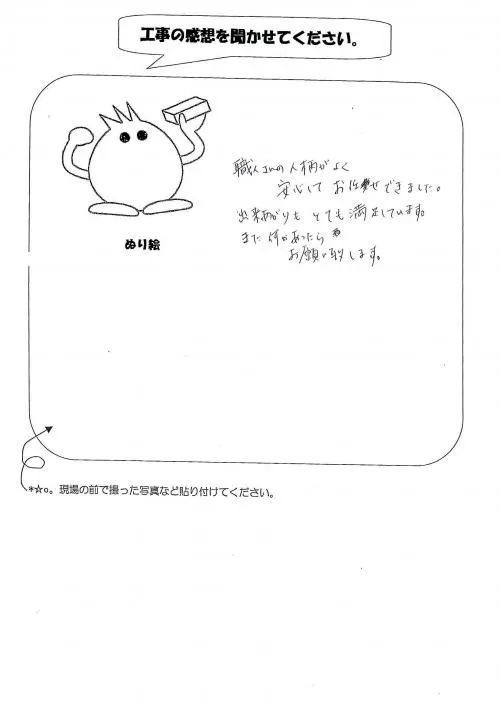 工事の感想を聞かせてください。
職人さんの人柄がよく
安心して お任せできました。
出来上がりも とても満足しています。
また何かあったら
お願い致します。
ぬり絵
*☆o。現場の前で撮った写真など貼り付けてください。